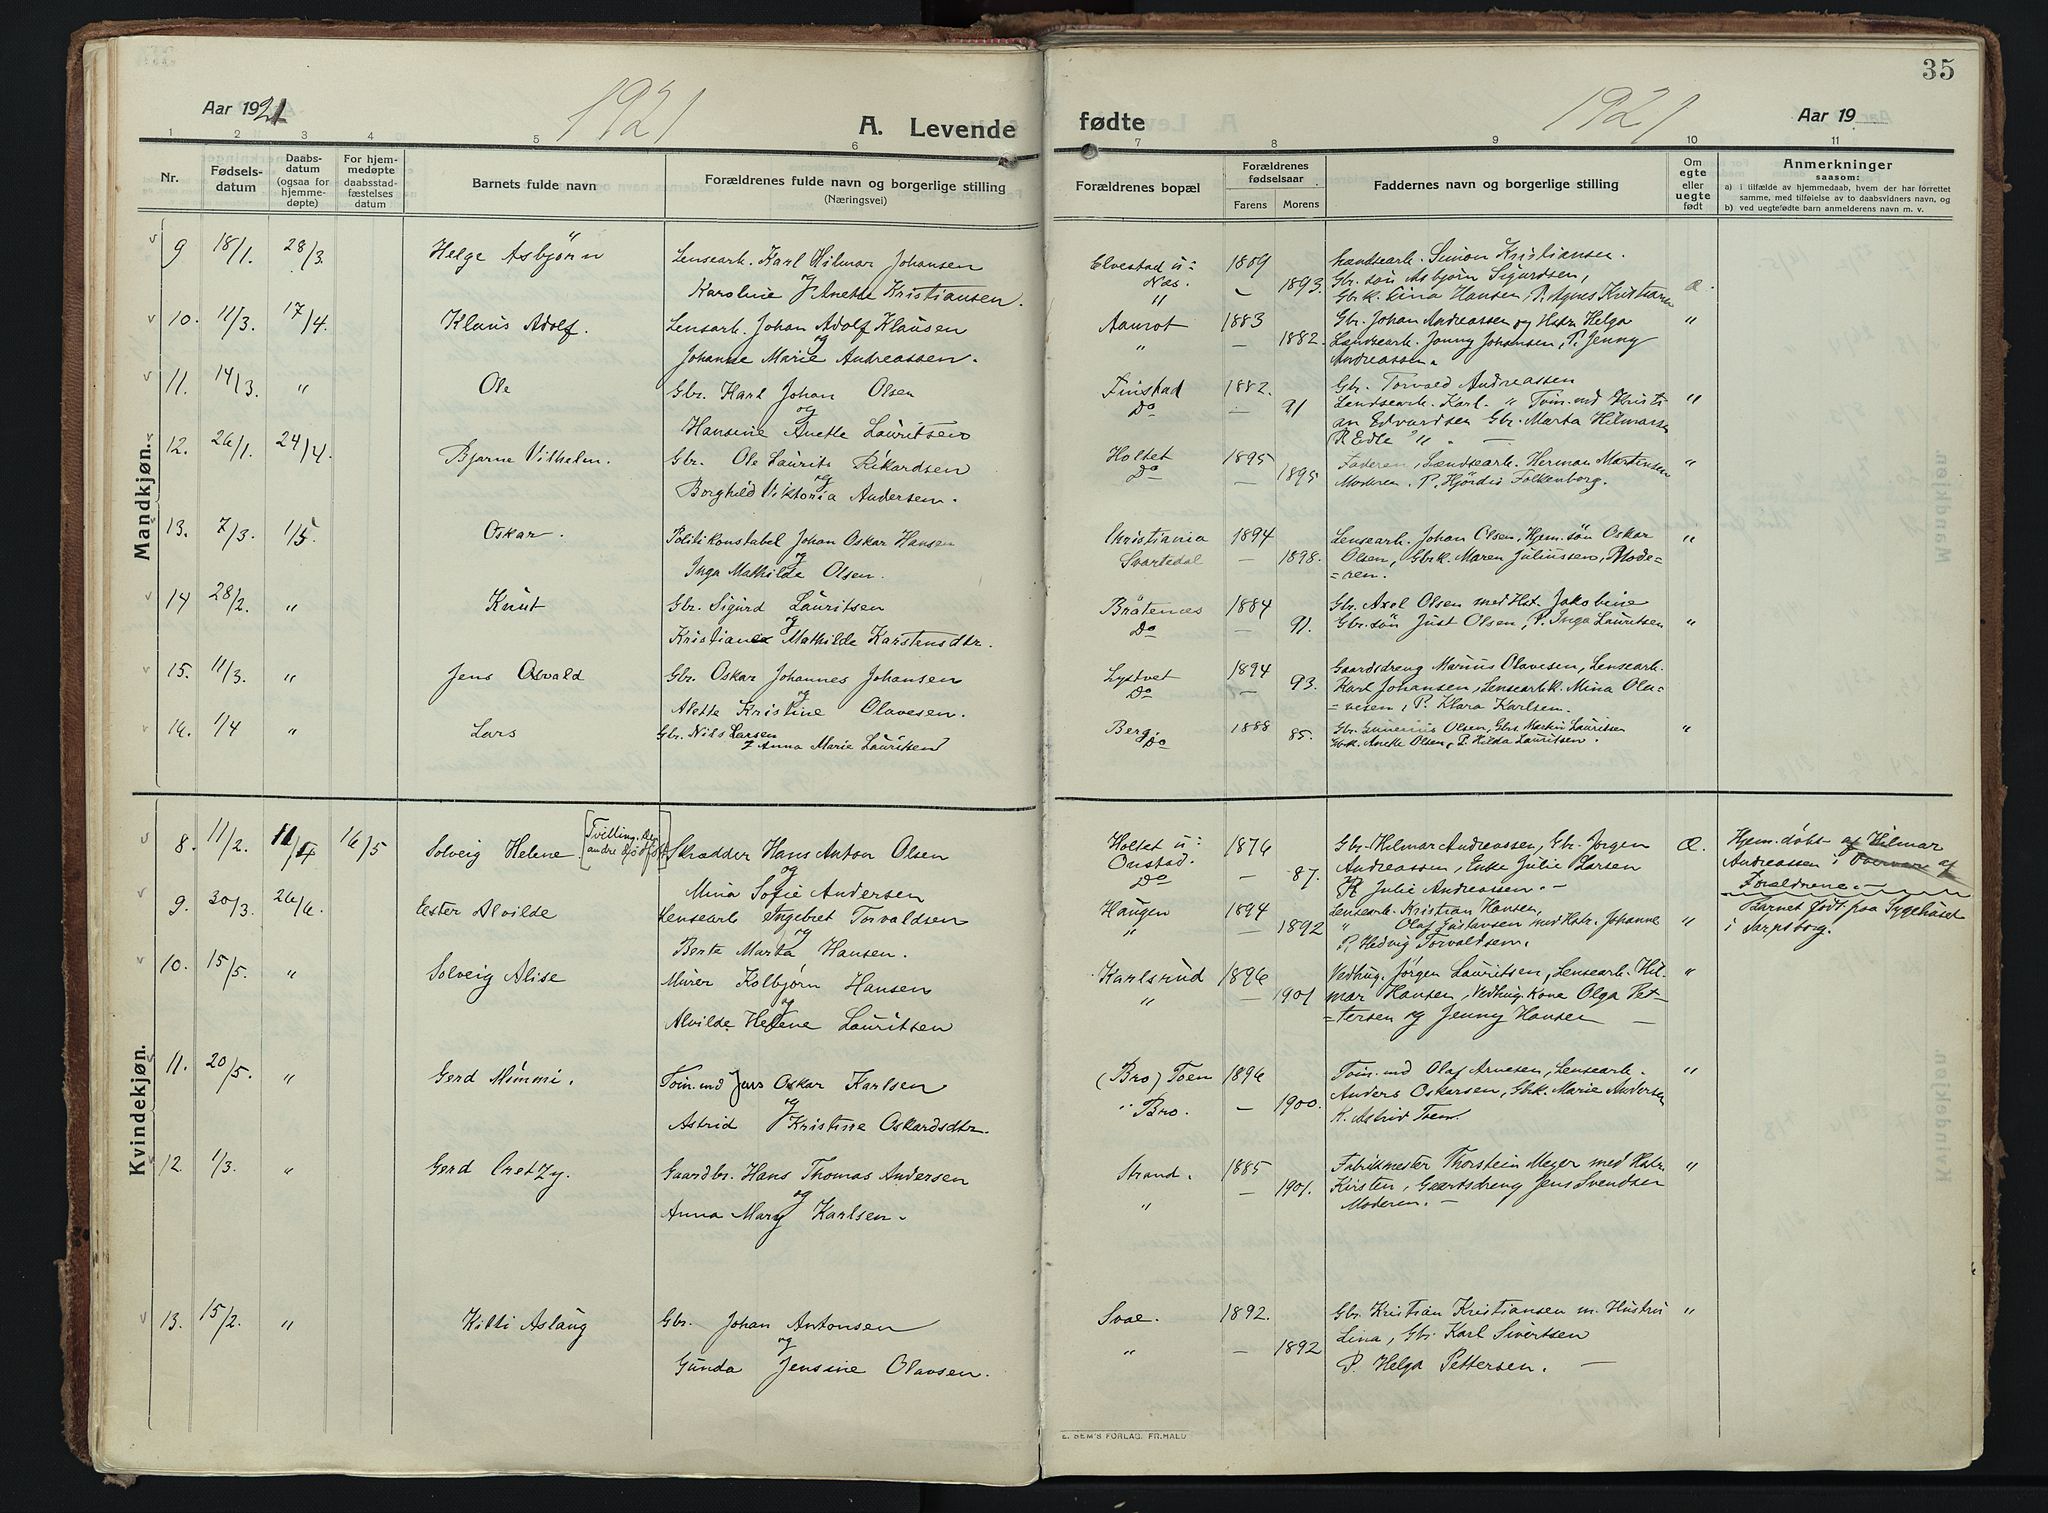 35
Aar 1921
1921
A. Levende
fødte
1921
Aar 19
1 2 3 4 5 6 7 8 9 10 11
Nr.
Fødsels-
datum
Daabs-
datum
(ogsaa for
hjemme-
døpte)
For hjem-
medøpte
daabsstad-
fæstelses
datum
Barnets fulde navn
Forældrenes fulde navn og borgerlige stilling
(Næringsvei)
Forældrenes bopæl
Forældrenes
fødselsaar
Farens Morens
Faddernes navn og borgerlige stilling
Om
egte
eller
uegte
født
Anmerkninger
saasom:
a) i tilfælde av hjemmedaab, hvem der har forrettet
samme, med tilføielse av to daabsvidners navn, og
b) ved uegtefødte barn anmelderens navn m. v.
Mandkjøn.
9 18/1. 28/3. Helge Asbjørn Lensearb. Karl Hilmar Johansen
og
Karoline Anette Kristiansen.
Elvestad u:
Næs.
"
1889 - 1893.
Landsearb. Simon Kristiansen.
Gbr. søn Asbjørn Sigurdsen,
Gbrk. Lina Hansen, P. Agnes Kristiansen
Æ.
10. 11/3. 17/4. Klaus Adolf. Lensarb. Johan Adolf Klausen
og
Johanne Marie Andreassen.
Aamot
"
1883 - 1882.
Gbr. Johan Andreassen og Hstr. Helga
Landsearb. Jonny Johansen, P. Jenny
Andreassen.
"
11. 14/3. " Ole Gbr. Karl Johan Olsen
og
Hansine Anette Lauritsen
Finstad
Do
1882. - 91
Gbr. Torvald Andreassen
Landsearb. Karl " Tøm.md Kristi-
an Edvardsen Gbr. Marta Hilmarsen
P. Edle " -
"
12. 26/1. 24/4. Bjarne Vilhelm. Gbr. Ole Laurits Rikardsen
og
Borghild Viktoria Andersen.
Holtet
Do
1895 - 1895
Faderen, Lændsearb. Herman Martinsen
Moderen. P. Hjördis Folkenborg.
"
13. 7/3. 1/5. Oskar. Politikonstabel Johan Oskar Hansen
og
Inga Mathilde Olsen.
Christiania
Svartedal
1894 - 1898.
Lensearb. Johan Olsen, Hjem. søn Oskar
Olsen, Gbrk. Maren Juliussen, Mode-
=ren.
"
14 28/2. " Knut Gbr. Sigurd Lauritsen
og
Kristiane Mathilde Karstensdtr.
Bråtenes
Do
1884 - 91.
Gbr. Axel Olsen med Hst. Jakobine
Gbr. søn Just Olsen, P. Inga Lauritsen
"
15. 11/3. " Jens Osvald Gbr. Oskar Johannes Johansen
og
Alette Kristine Olavesen.
Lystvet
Do
1894 - 93.
Gaardsdreng Marius Olavesen, Lensearb.
Karl Johansen, Lensearbk. Mina Ola-
=vesen, P. Klara Karlsen.
16. 1/4 " Lars Gbr. Nils Larsen
og Anna Marie Lauritsen
Berg
Do
1888 85.
Gbr. Gunerius Olsen, Gbr. Martin Lauritsen
Gbrk. Anette Olsen, P. Hilda Lauritsen.
"
Kvindekjøn.
8. 11/2. 16/5 Solveig Helene. [Tvilling. Den
andre dødfødt] Skrædder Hans Anton Olsen
og
Mina Sofie Andersen
Holtet u:
Onstad.
Do
1876 - 87.
Gbr. Hilmar Andreassen, Gbr. Jørgen
Andreassen, Enke Julie Larsen
P. Julie Andreassen. -
Æ.
Hjem. døbt af Hilmar
Andreassen i Overvær af
Forældrene. -
9. 30/3. 26/6. Ester Alvilde Lensearb Ingebret Torvaldsen
og
Berta Marta Hansen.
Haugen
"
1894 - 1892
Lensearb. Kristian Hansen,
" Olaf Gustavsen med Hstr. Johanne
P. Hedvig Torvaldsen.
"
Barnet født paa Sygehuset
i Sarpsborg.
10. 15/5. " Solveig Alise Murer Kolbjørn Hansen
og
Alvilde Helene Lauritsen
Karlsrud
"
1896 - 1901
Vedhug. Jørgen Lauritsen, Lensearb. Hil-
mar Hansen, Vedhug. Kone Olga Pet-
=tersen og Jenny Hansen -
"
11. 20/5. " Gerd Mimmi. Tøm.md Jens Oskar Karlsen
og
Astrid Kristine Oskardsdtr.
(Bro) Toen
i Bro.
1896 - 1900.
Tøm.md Olaf Arnesen, Lensearb.
Anders Oskarsen, Gbrk. Marie Andersen
K. Astrid Toen.
"
12. 1/3. " Gerd Cretzy. Gaardbr. Hans Thomas Andersen
og
Anna Mary Karlsen.
Strand.
"
1885 - 1901.
Fabrikmester Thorstein Meyer med Hstr.
Kirsten, Gaardsdreng Jens Svendsen
Moderen. -
"
13. 15/2. " Kitti Aslaug Gbr. Johan Antonsen
og
Gunda Jensine Olavsen.
Svae.
"
1892. - 1892
Gbr. Kristian Kristiansen m. Hustru
Lina, Gbr. Karl Sivertsen
P. Helga Pettersen. -
"
E. SEM'S FORLAG, FR.HALD